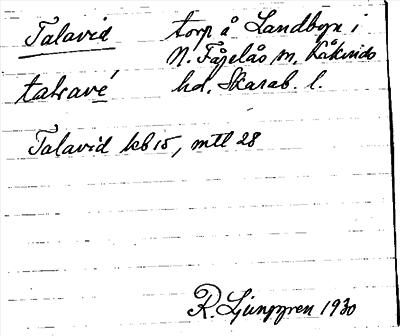 Talavid torp å Landbogn i
N. Fågelås sn, Kåkinds
talavé hd. Skarab. l.
Talavid kb 15, mtl 28
R. Ljunggren 1930